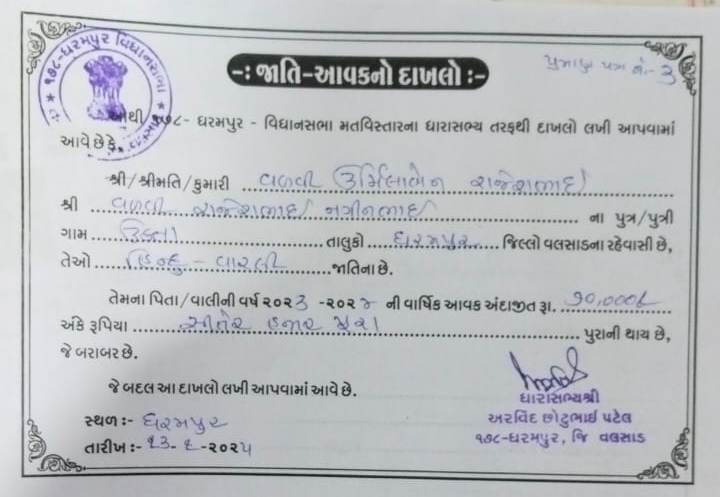 ૧૭૮-ધરમપુર વિધાનસભા
પ્રમાણ પત્ર નં.- 3
-: જાતિ-આવકનો દાખલો :-
આથી ૧૭૮- ધરમપુર - વિધાનસભા મતવિસ્તારના ધારાસભ્ય તરફથી દાખલો લખી આપવામાં
આવે છે કે,
શ્રી/શ્રીમતિ/કુમારી વળવી ઉર્મિલાબેન રાજેશભાઈ
શ્રી વળવી રાજેશભાઈ નગીનભાઈ ના પુત્ર/પુત્રી
ગામ તાલુકો ધરમપુર જિલ્લો વલસાડના રહેવાસી છે,
તેઓ હિન્દુ - વારલી જાતિના છે.
તેમના પિતા/વાલીની વર્ષ ૨૦૨૩ -૨૦૨૪ ની વાર્ષિક આવક અંદાજીત રૂા. ૭૦,૦૦૦/-
અંકે રૂપિયા સીતેર હજાર પુરા પુરાની થાય છે,
જે બરાબર છે.
જે બદલ આ દાખલો લખી આપવામાં આવે છે.
સ્થળ :- ધરમપુર
તારીખ :- ૨૦૨૫
ધારાસભ્યશ્રી
અરવિંદ છોટુભાઈ પટેલ
૧૭૮-ધરમપુર, જિ વલસાડ